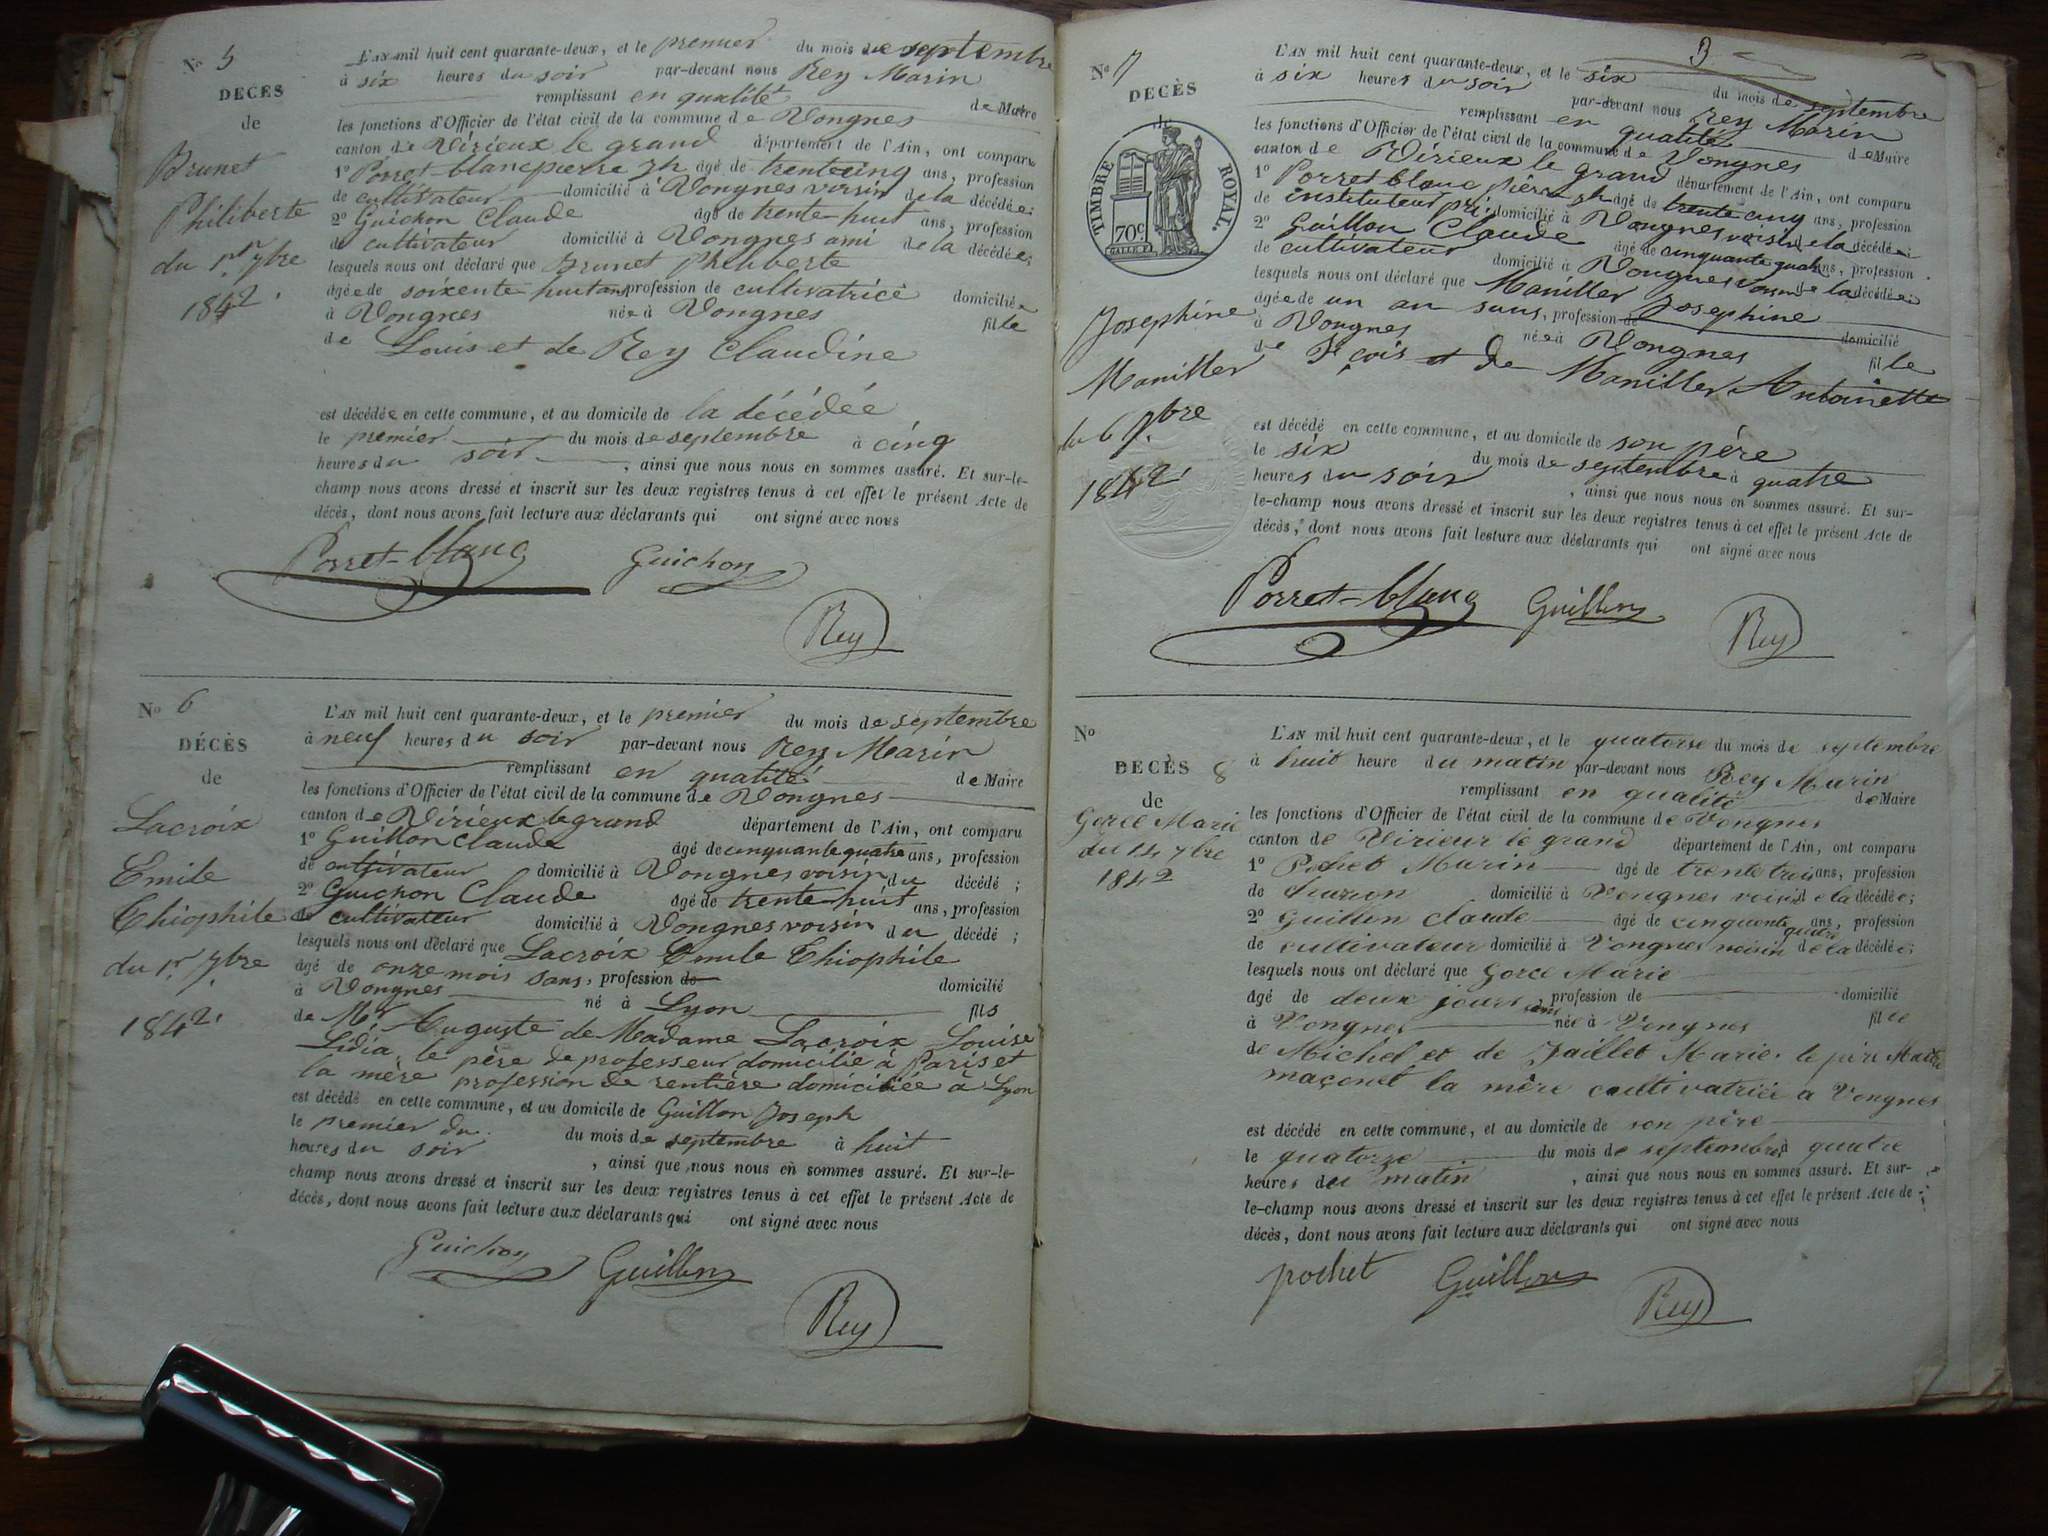 No 5
DECÈS
de
Brunet
Philiberte
du 1er 7bre
1842
L'AN mil huit cent quarante-deux, et le premier du mois de septembre
à six heures du soir par-devant nous Rey Marin
remplissant en qualité de Maire
les fonctions d'Officier de l'état civil de la commune de Vongnes
canton de Virieux le grand département de l'Ain, ont comparu
1o Porret-blanc pierre jh âgé de trente cinq ans, profession
de cultivateur domicilié à Vongnes voisin de la décédée;
2o Guichon Claude âgé de trente huit ans, profession
de cultivateur domicilié à Vongnes ami de la décédée;
lesquels nous ont déclaré que Brunet Philiberte
âgée de soixente huit ans profession de cultivatrice domicilié
à Vongnes née à Vongnes fille
de Louis et de Rey Claudine
est décédée en cette commune, et au domicile de la décédée
le premier du mois de septembre à cinq
heures du soir, ainsi que nous nous en sommes assuré. Et sur-le-
champ nous avons dressé et inscrit sur les deux registres tenus à cet effet le présent Acte de
décès, dont nous avons fait lecture aux déclarants qui ont signé avec nous
Porret-blanc Guichon
Rey
No 6
DÉCÈS
de
Lacroix
Emile
Thiophile
du 1r 7bre
1842
L'AN mil huit cent quarante-deux, et le premier du mois de septembre
à neuf heures du soir par-devant nous Rey Marin
remplissant en qualité de Maire
les fonctions d'Officier de l'état civil de la commune de Vongnes
canton de Virieux le grand département de l'Ain, ont comparu
1o Guillon Claude âgé de cinquante quatre ans, profession
de cultivateur domicilié à Vongnes voisin du décédé;
2o Guichon Claude âgé de trente huit ans, profession
de cultivateur domicilié à Vongnes voisin du décédé;
lesquels nous ont déclaré que Lacroix Emile Thiophile
âgé de onze mois sans, profession de domicilié
à Vongnes né à Lyon fils
de Mr Auguste de Madame Lacroix Louise
Lidia, le père de professeur domicilié à Paris et
la mère profession de rentière domiciliée à Lyon
est décédé en cette commune, et au domicile de Guillon Joseph
le premier du du mois de septembre à huit
heures du soir, ainsi que nous nous en sommes assuré. Et sur-le-
champ nous avons dressé et inscrit sur les deux registres tenus à cet effet le présent Acte de
décès, dont nous avons fait lecture aux déclarants qui ont signé avec nous
Guichon Guillon
Rey
3
No 7
DECÈS
de
TIMBRE ROYAL.
70c
Josephine
Maniller
du 6 7bre
1842
L'AN mil huit cent quarante-deux, et le six du mois de septembre
à six heures du soir par-devant nous Rey Marin
remplissant en qualité de Maire
les fonctions d'Officier de l'état civil de la commune de Vongnes
canton de Virieux le grand département de l'Ain, ont comparu
1o Porret blanc pierre jh âgé de trente cinq ans, profession
de instituteur pri. domicilié à Vongnes voisin de la décédée;
2o Guillon Claude âgé de cinquante quatre ans, profession
de cultivateur domicilié à Vongnes voisin de la décédée;
lesquels nous ont déclaré que Maniller Josephine
âgée de un an sans, profession de domicilié
à Vongnes née à Vongnes fille
de Fçois et de Maniller Antoinette
est décédé en cette commune, et au domicile de son père
le six du mois de septembre à quatre
heures du soir, ainsi que nous nous en sommes assuré. Et sur-
le-champ nous avons dressé et inscrit sur les deux registres tenus à cet effet le présent Acte de
décès, dont nous avons fait lecture aux déclarants qui ont signé avec nous
Porret-blanc Guillon
Rey
No
DECÈS 8
de
Gorce Marie
du 14 7bre
1842
L'AN mil huit cent quarante-deux, et le quatorse du mois de septembre
à huit heure du matin par-devant nous Rey Marin
remplissant en qualité de Maire
les fonctions d'Officier de l'état civil de la commune de Vongnes
canton de Virieux le grand département de l'Ain, ont comparu
1o Pochet Marin âgé de trente trois ans, profession
de domicilié à Vongnes voisin de la décédée;
2o Guillon Claude âgé de cinquante quatre ans, profession
de cultivateur domicilié à Vongnes voisin de la décédée;
lesquels nous ont déclaré que Gorce Marie
âgé de deux jours sans, profession de domicilié
à Vongnes née à Vongnes fille
de Michel et de Jaillet Marie. le père Maitre
maçon et la mère cultivatrice a Vongnes
est décédé en cette commune, et au domicile de son père
le quatorze du mois de septembre à quatre
heures du matin, ainsi que nous nous en sommes assuré. Et sur-
le-champ nous avons dressé et inscrit sur les deux registres tenus à cet effet le présent Acte de
décès, dont nous avons fait lecture aux déclarants qui ont signé avec nous
pochet Guillon
Rey